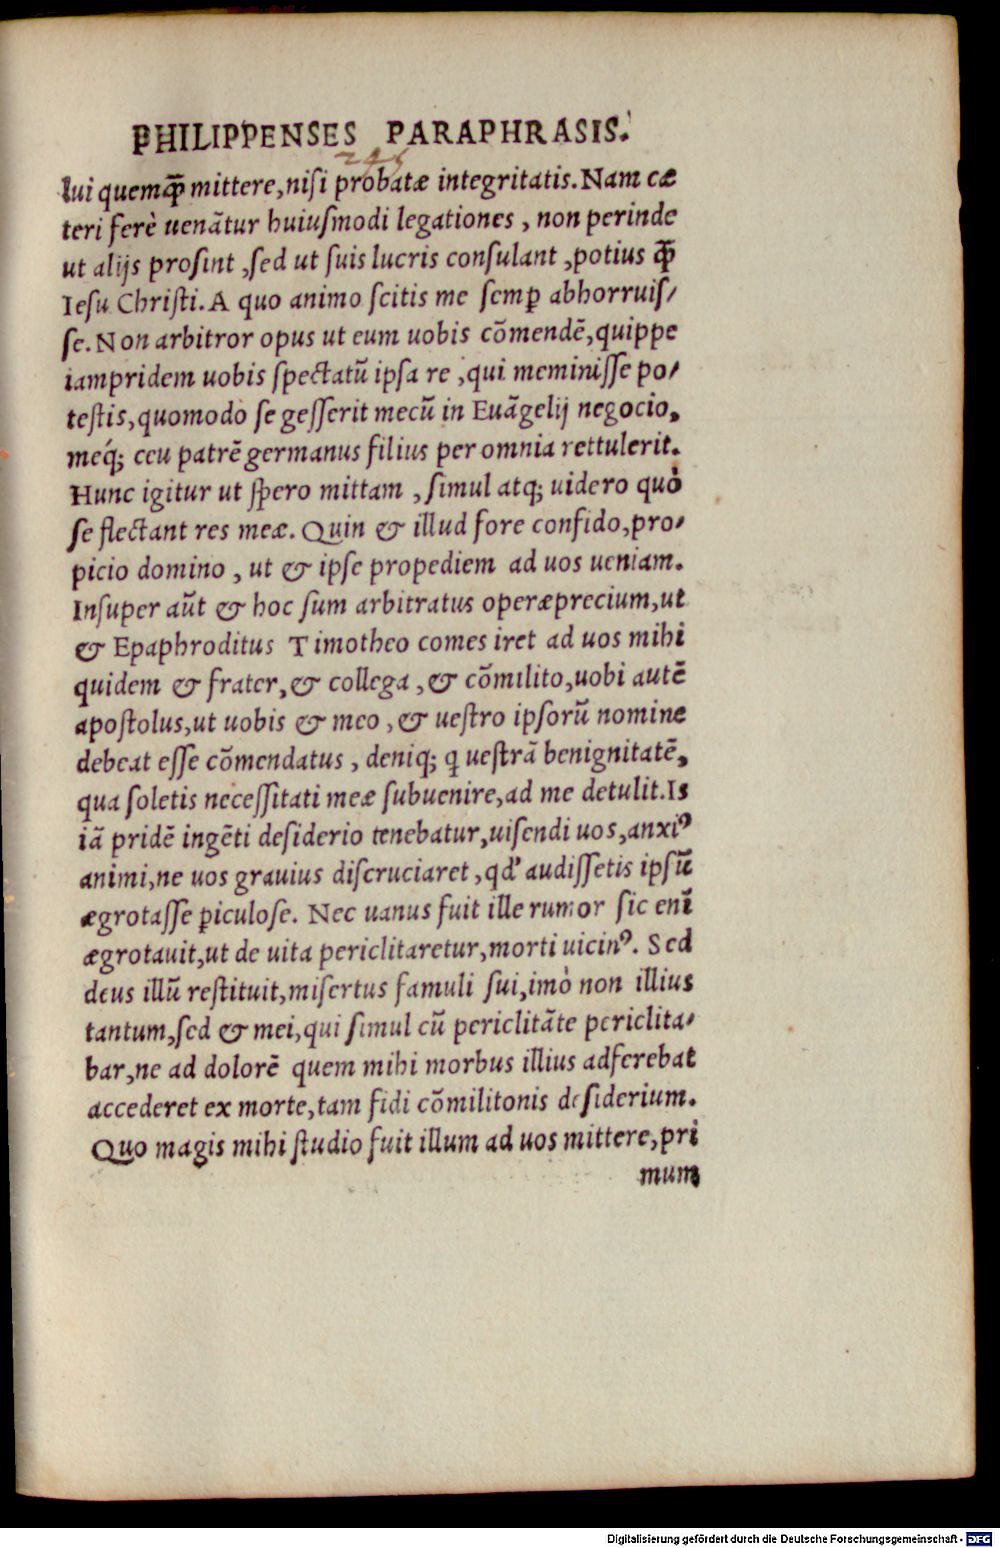 PHILIPPENSES PARAPHRASIS.
245
lui quemq̄ꝫ mittere, nisi probatæ integritatis. Nam cæ
teri ferè uenātur huiuſmodi legationes, non perinde
ut alijs prosint, ſed ut ſuis lucris conſulant, potius q̄ꝫ
Ieſu Chriſti. A quo animo ſcitis me ſemꝑ abhorruiſ/
ſe. Non arbitror opus ut eum uobis cōmendē, quippe
iampridem uobis ſpectatū ipſa re, qui meminiſſe po/
teſtis, quomodo ſe geſſerit mecū in Euāgelij negocio,
méq; ceu patrē germanus filius per omnia rettulerit.
Hunc igitur ut ſpero mittam, ſimul atq; uidero quò
ſe flectant res meæ. Quin & illud fore confido, pro/
picio domino, ut & ipſe propediem ad uos ueniam.
Inſuper aūt & hoc ſum arbitratus operæprecium, ut
& Epaphroditus Timotheo comes iret ad uos mihi
quidem & frater, & collega, & cōmilito, uobi autē
apoſtolus, ut uobis & meo, & ueſtro ipſorū nomine
debeat eſſe cōmendatus, deniq; ꝗ ueſtrā benignitatē,
qua ſoletis neceſſitati meæ ſubuenire, ad me detulit. Is
iā pridē ingēti deſiderio tenebatur, uiſendi uos, anxiꝰ
animi, ne uos grauius diſcruciaret, qd' audiſſetis ipſū
ægrotaſſe ꝑiculoſe. Nec uanus fuit ille rumor ſic enī
ægrotauit, ut de uita periclitaretur, morti uicinꝰ. Sed
deus illū reſtituit, miſertus famuli ſui, imò non illius
tantum, ſed & mei, qui ſimul cū periclitāte periclita/
bar, ne ad dolorē quem mihi morbus illius adferebat
accederet ex morte, tam fidi cōmilitonis deſiderium.
Quo magis mihi ſtudio fuit illum ad uos mittere, pri
mum
Digitalisierung gefördert durch die Deutsche Forschungsgemeinschaft - DFG